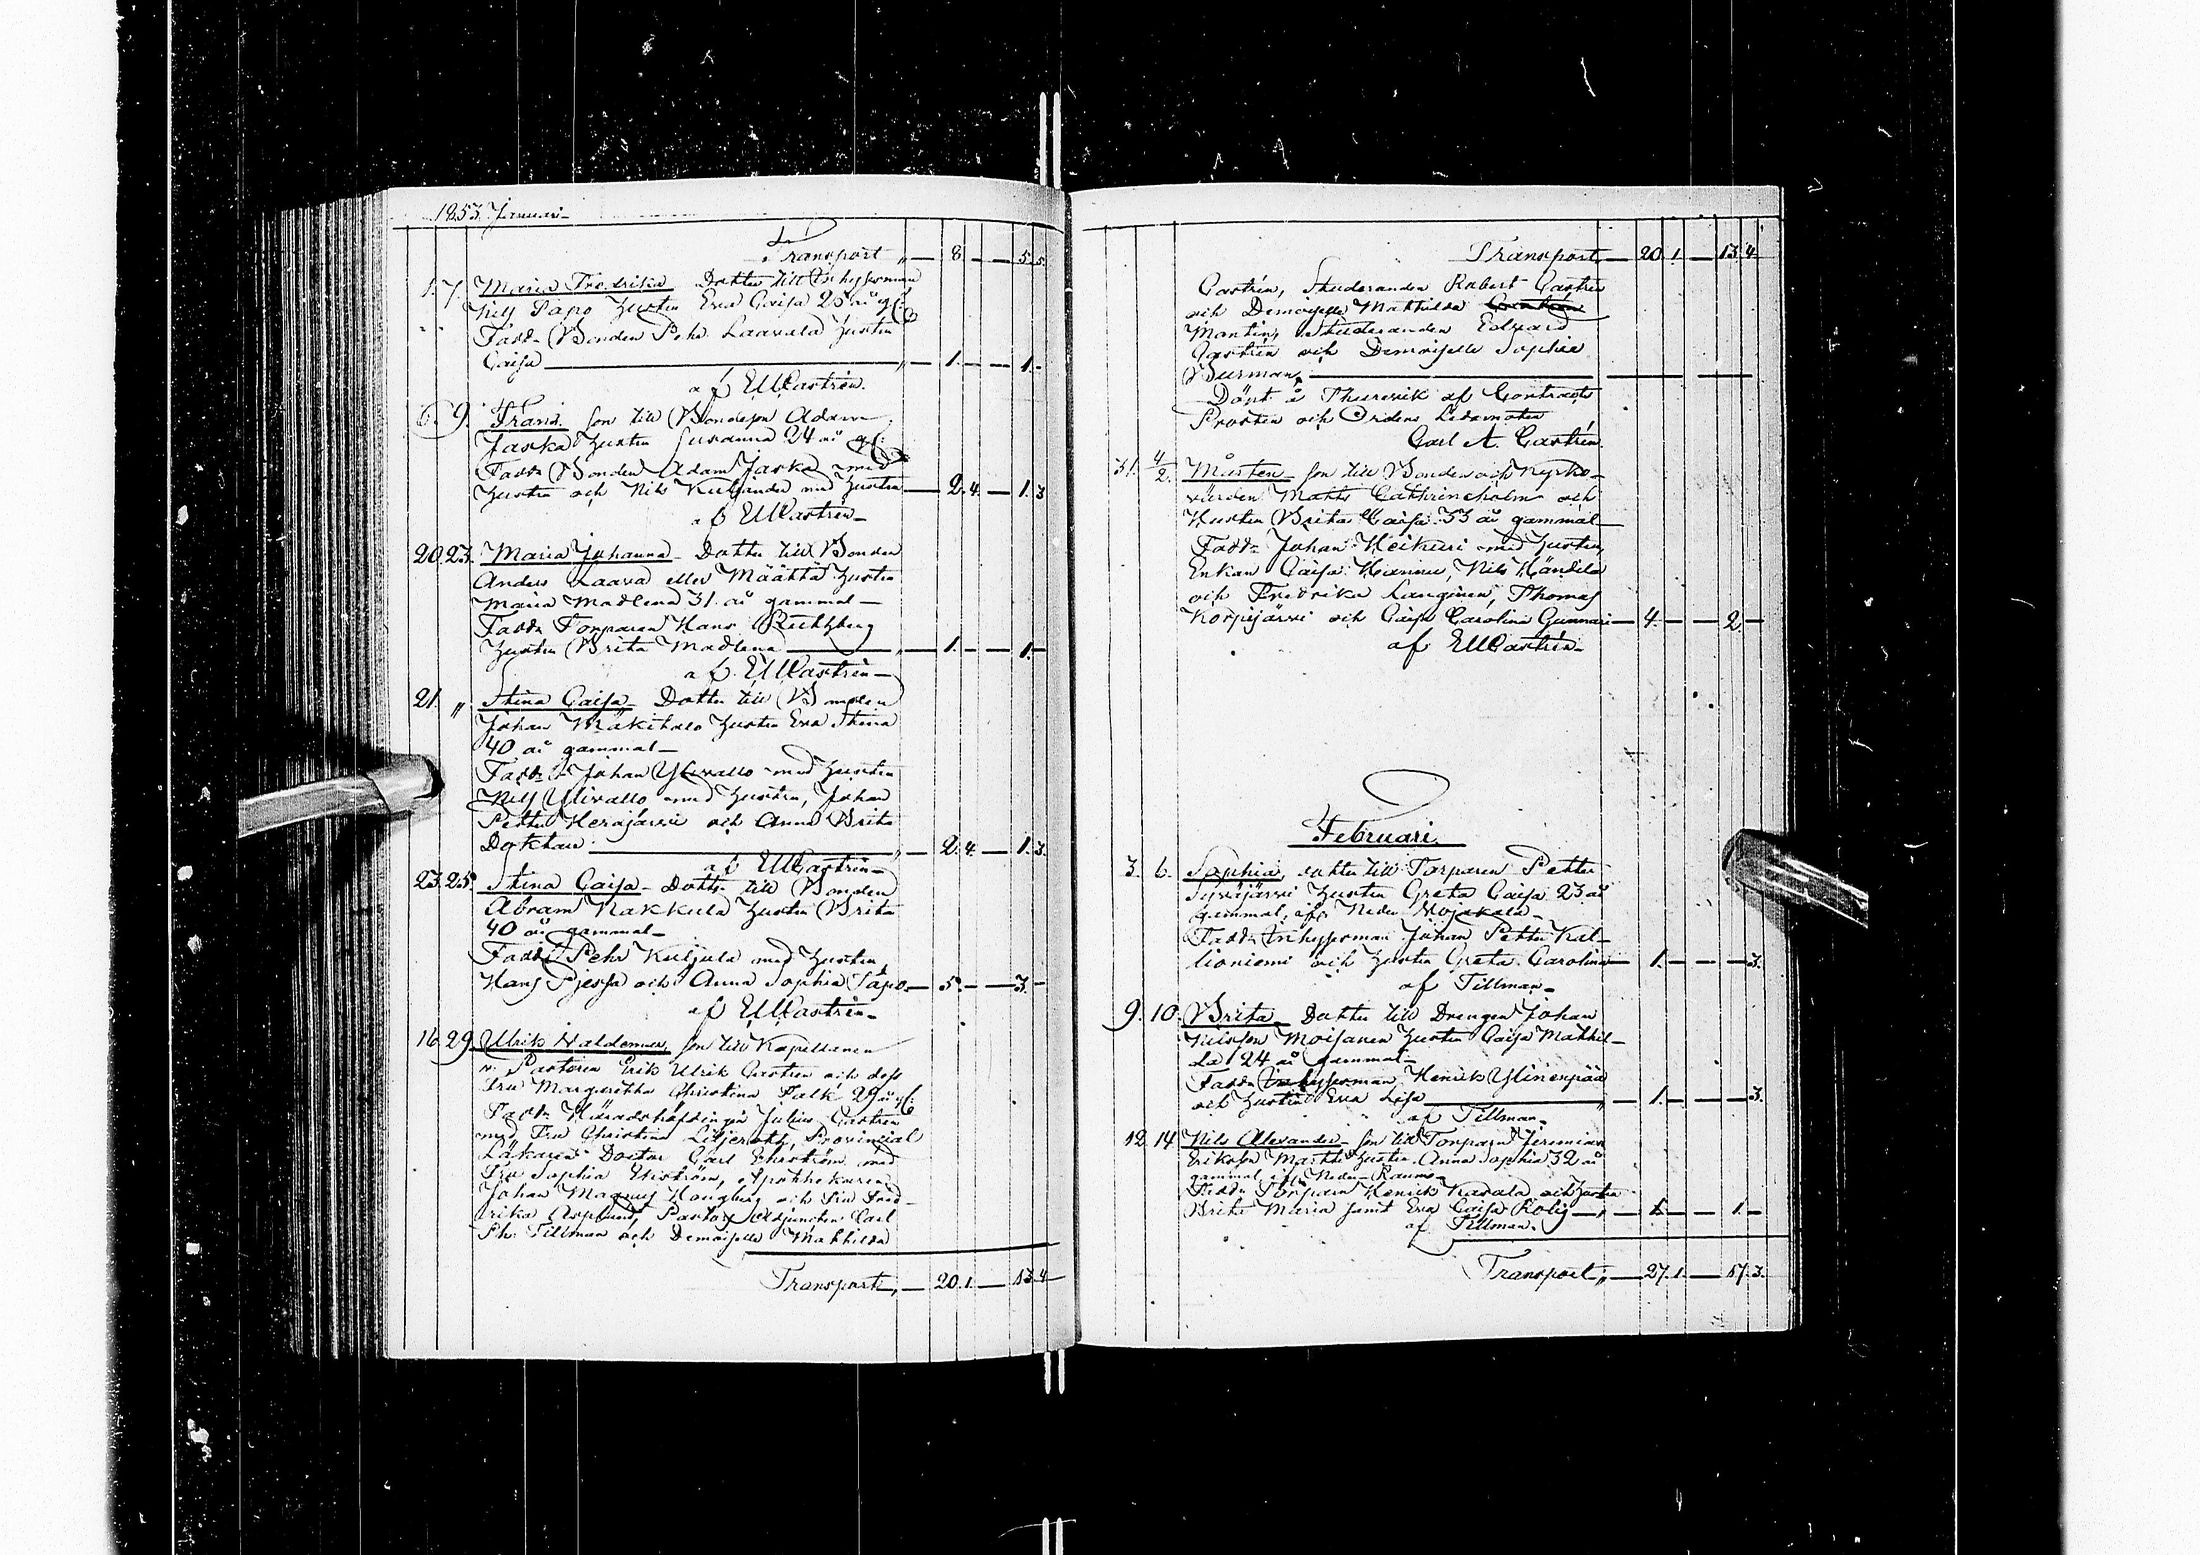 1853. Januari
Transport „ — 8 — — 5. 5.
1. 7. Maria Fredrika Dotter till Inhyseman
Nils Papo hustru Eva Caisa 25 år gl:
Fadd: Bonden Pehr Laavala hustru
Caisa — „ — 1. — — 1. —
af EUCastrén.
6. 9. Frans. son till Bondeson Adam
Jaska hustru Susanna 24 år gl:
Fadd: Bonden Adam Jaska med
hustru och Nils Kuljunder med hustru — 2. 4. — 1. 3
af EUCastrén
20. 23. Maria Johanna Dotter till Bonden
Anders Laava eller Määttä hustru
Maria Madlena 31. år gammal
Fadd: Torparen Hans
hustru Brita Madlena — „ — 1. — — 1. —
af EUCastrén
21. „ Stina Caisa Dotter till Bonden
Johan Mäkitalo hustru Eva Stina
40 år gammal
Fadd: Johan Ylivallo med hustru
Nils Ylivallo med hustru, Johan
Petter Herajärvi och Anna Brita
— „ — 2. 4. — 1. 3.
af EUCastrén
23. 25. Stina Caisa Dotter till Bonden
Abram Nakkula hustru Brita
40 år gammal
Fadd: Pehr Kuljula med hustru
Hans Pjessa och Anna Sophia Papo — 5. — — 3. —
af EUCastrén
16. 29. Ulrik Waldemar, son till Kapellanen
v. Pastoren Erik Ulrik Castrén och dess
Fru Margaretha Christina Falk 29 år gl:
Fadd: Häradshöfdingen Julius Castrén
med Fru Christina Liljeroth, Provincial
Läkaren Doctor Carl Ehrström med
Fru Sophia Ehrström, Apothekaren
Johan Magnus Hougberg och Fru Fred-
rika Asplund, Pastors Adjuncten Carl
Ph. Tillman och Demoiselle Mathilda
Transport „ — 20. 1. — 13. 4
Transport — 20. 1. — 13. 4.
Castrén, Studeranden Robert Castrén
och Demoiselle Mathilda Castrén
Mantin, Studeranden Edvard
Castrén och Demoiselle Sophia
Burman
Döpt i Thurevik af Contracts
Prosten och Ordens Ledamoten
Carl A. Castrén
31. 4/2. Mårten son till Bonden och Nybo-
värden Matts Cathrineholm och
Hustru Brita Caisa 33 år gammal
Fadd: Johan Heikuri med hustru,
Enkan Caisa Hannu, Nils Händela
och Fredrika Länginen, Thomas
Korpijärvi och Caisa Carolina Gunnari — 4. — — 2. —
af EUCastrén
Februari.
3. 6. Sophia, dotter till Torparen Petter
Syväjärvi hustru Greta Caisa 23 år
gammal, ifr. Neder Mojakala
Fadd: Inhyseman Johan Petter Kal-
lioniemi och hustru Greta Carolina — 1. — — — 3.
af Tillman
9. 10. Brita Dotter till Drengen Johan
Nilsson Moisanen hustru Caisa Mathil-
da 24 år gammal
Fadd: Inhyseman Henrik Ylinenpää
och hustru Eva Lisa — „ — 1. — — — 3.
af Tillman
12. 14. Nils Alexander son till Torparen Jeremias
Eriksson Martti hustru Anna Sophia 32 år
gammal ifr. Neder-Raumo
Fadd: Torparen Henrik Kadala och hustru
Brita Maria samt Eva Caisa Rolig — „ — 1. — — 1. —
af Tillman.
Transport „ — 27. 1. — 17. 3.